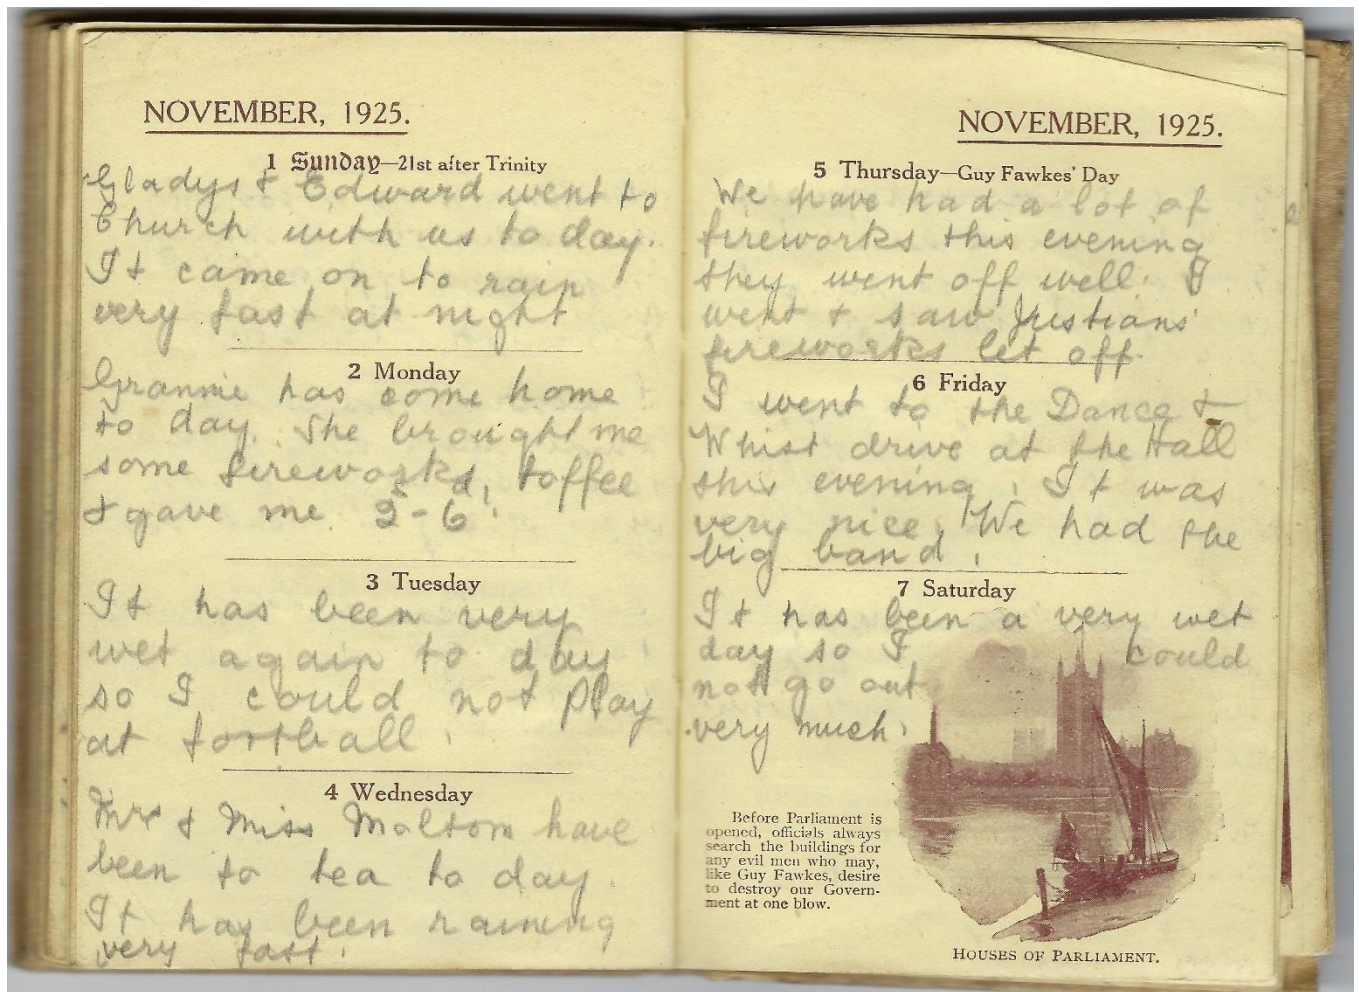 NOVEMBER, 1925.
1 Sunday—21st after Trinity
Gladys & Edward went to
Church with us to day.
It came on to rain
very fast at night
2 Monday
Grannie has come home
to day. She brought me
some fireworks, toffee
& gave me 2-6.
3 Tuesday
It has been very
wet again to day
so I could not play
at football.
4 Wednesday
Mrs & Miss Maltom have
been to tea to day.
It has been raining
very fast.
NOVEMBER, 1925.
5 Thursday—Guy Fawkes' Day
We have had a lot of
fireworks this evening
they went off well. I
went & saw
fireworks let off.
6 Friday
I went to the Dance &
Whist drive at the Hall
this evening. It was
very nice. We had the
big band.
7 Saturday
It has been a very wet
day so I could
not go out
very much.
Before Parliament is
opened, officials always
search the buildings for
any evil men who may,
like Guy Fawkes, desire
to destroy our Govern-
ment at one blow.
HOUSES OF PARLIAMENT.